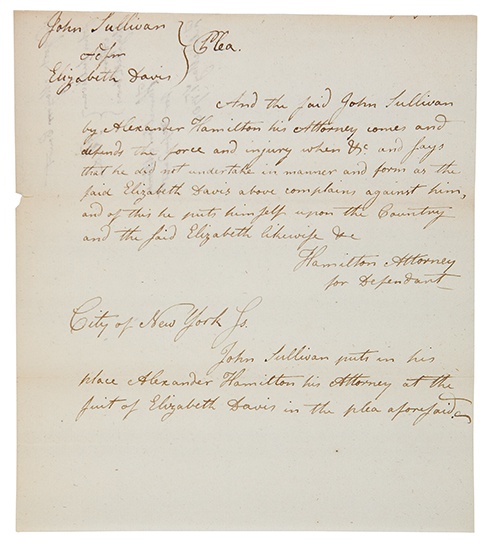 John Sullivan
Elizabeth Davis
Plea.
And the said John Sullivan
by Alexander Hamilton his Attorney comes and
defends the force and injury when &c and says
that he did not undertake in manner and form as the
said Elizabeth Davis above complains against him,
and of this he puts himself upon the Country
and the said Elizabeth likewise &c
Hamilton Attorney
for Defendant
City of New York Ss.
John Sullivan puts in his
place Alexander Hamilton his Attorney at the
suit of Elizabeth Davis in the plea aforesaid.